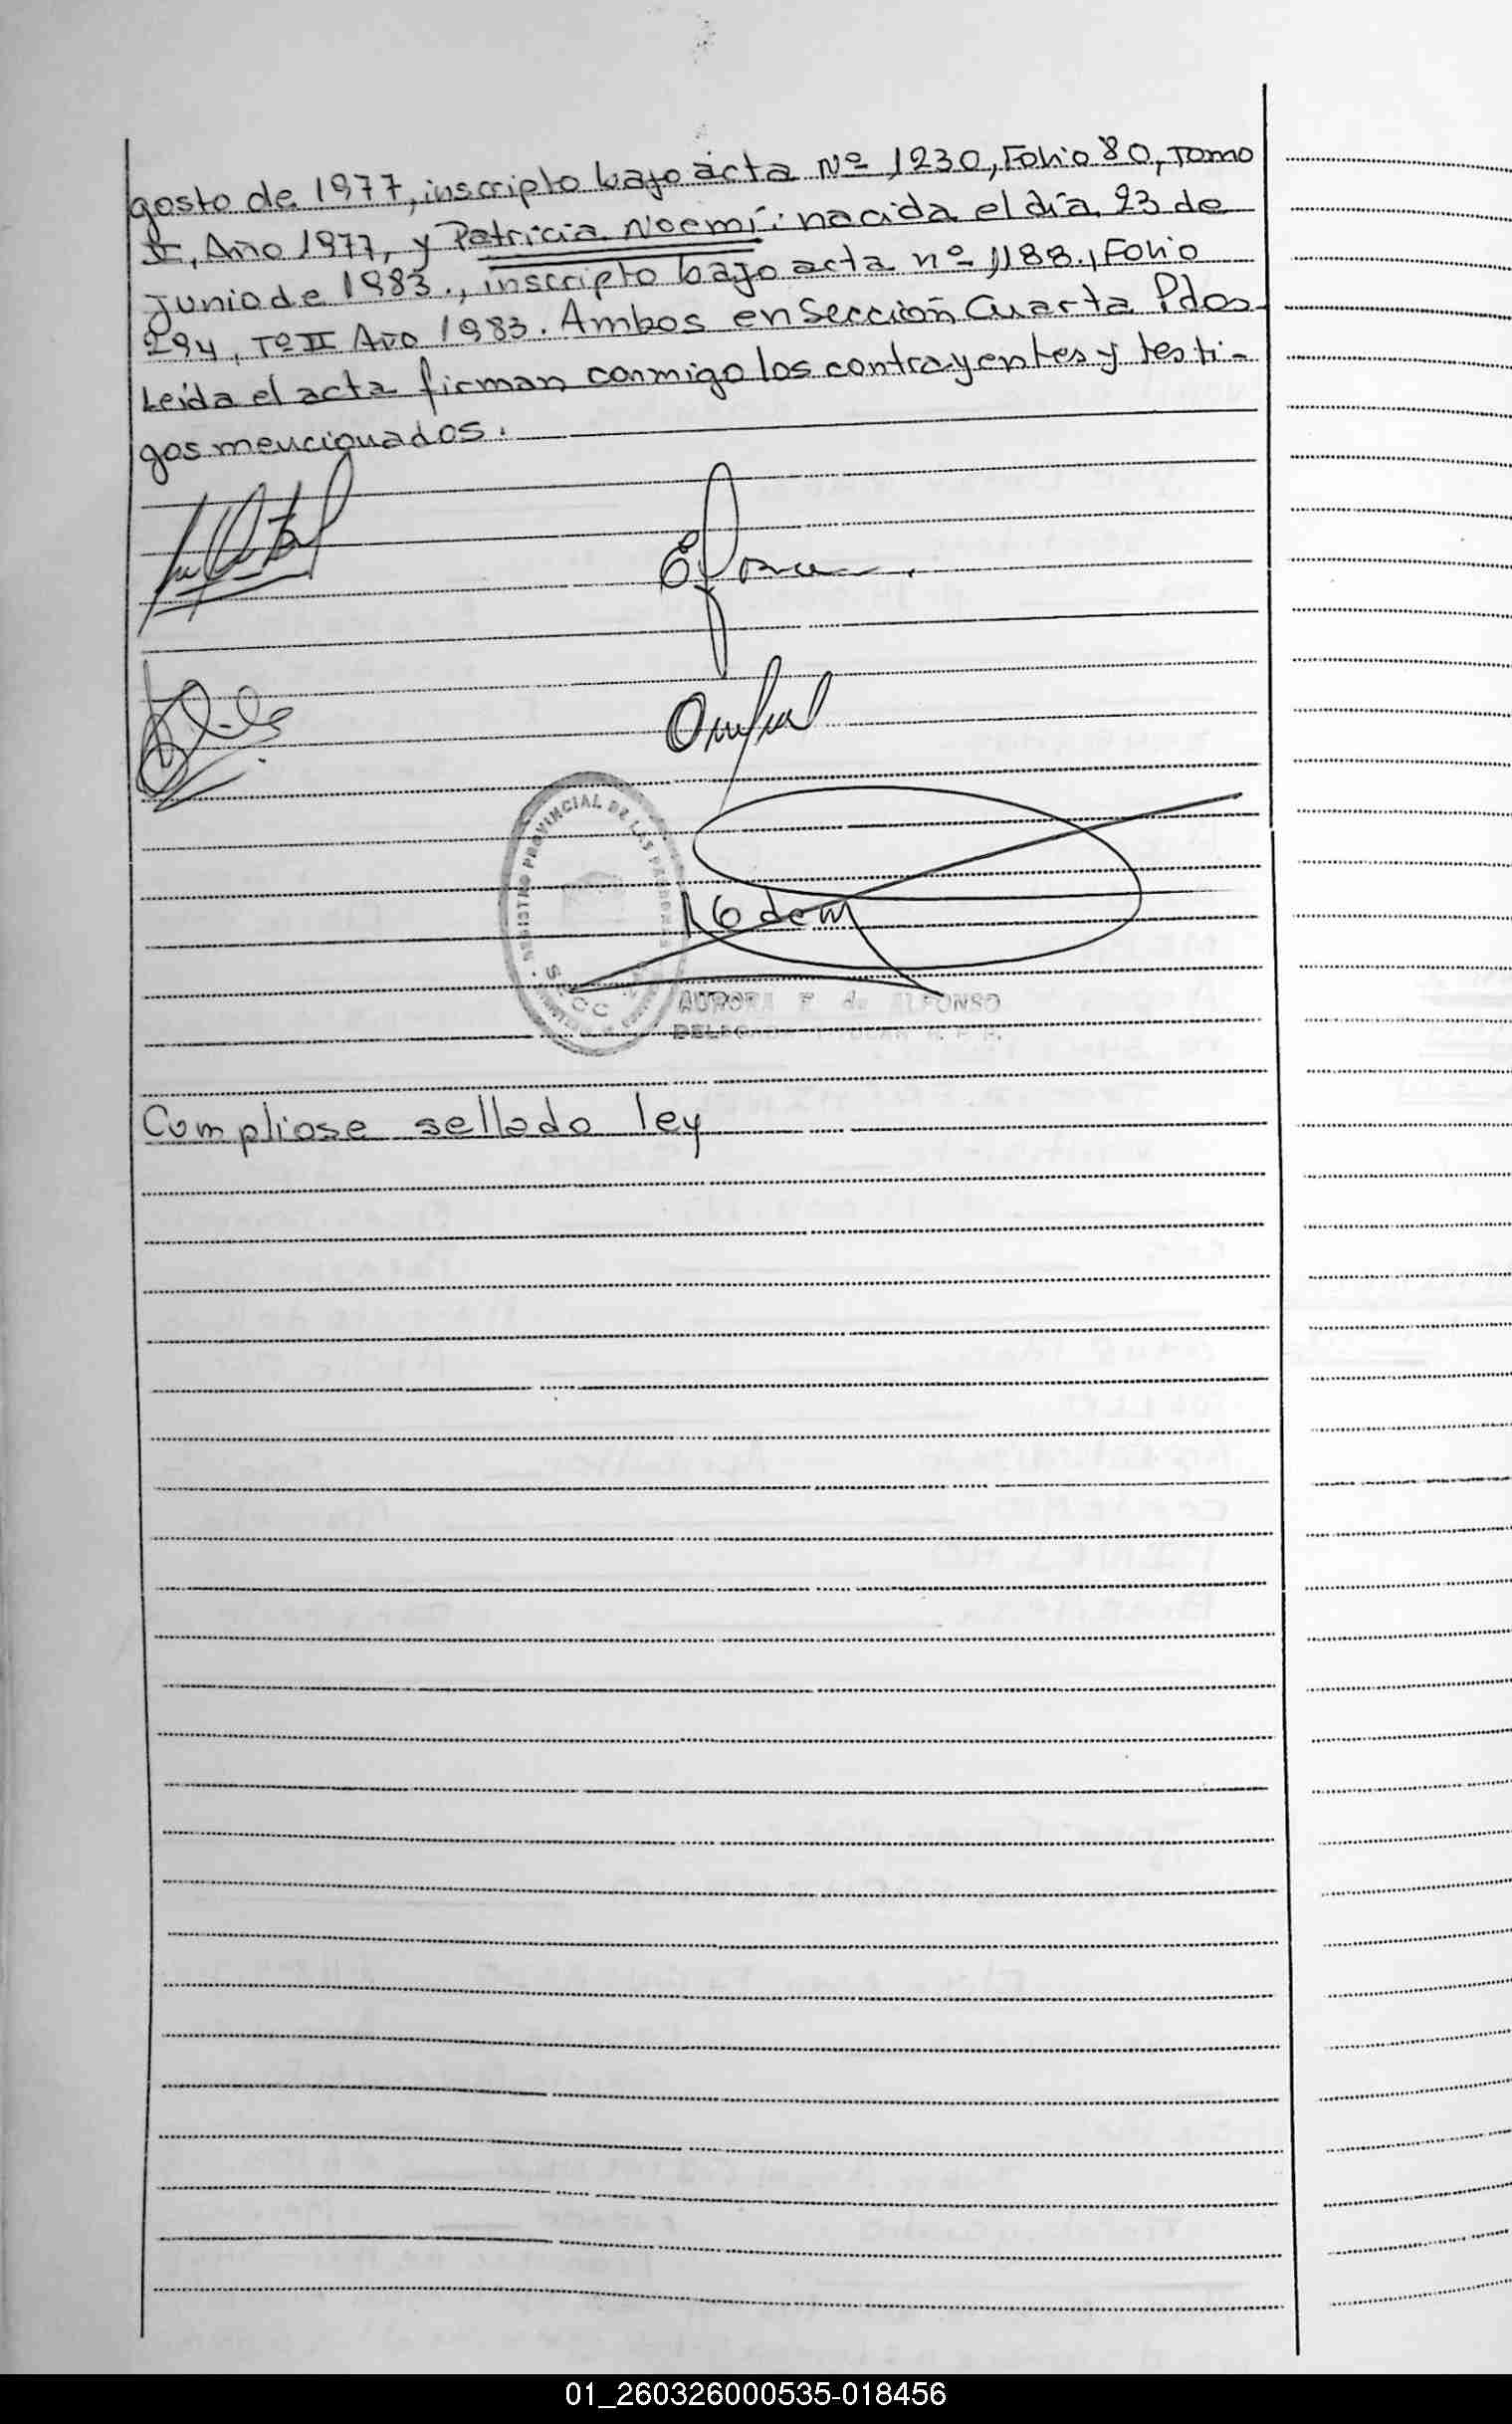 gosto de 1977, inscripto bajo acta Nº 1230, Folio 80, Tomo
II, Año 1977, y Patricia Noemí: nacida el día 23 de
Junio de 1983., inscripto bajo acta nº 1188., Folio
294, Tº II Año 1983. Ambos en Sección Cuarta Pdos-
Leída el acta firman conmigo los contrayentes y testi-
gos mencionados.
REGISTRO PROVINCIAL DE LAS PERSONAS
AURORA F. de ALFONSO
DELEGADA TITULAR R. P. P.
Cumpliose sellado ley
01_260326000535-018456